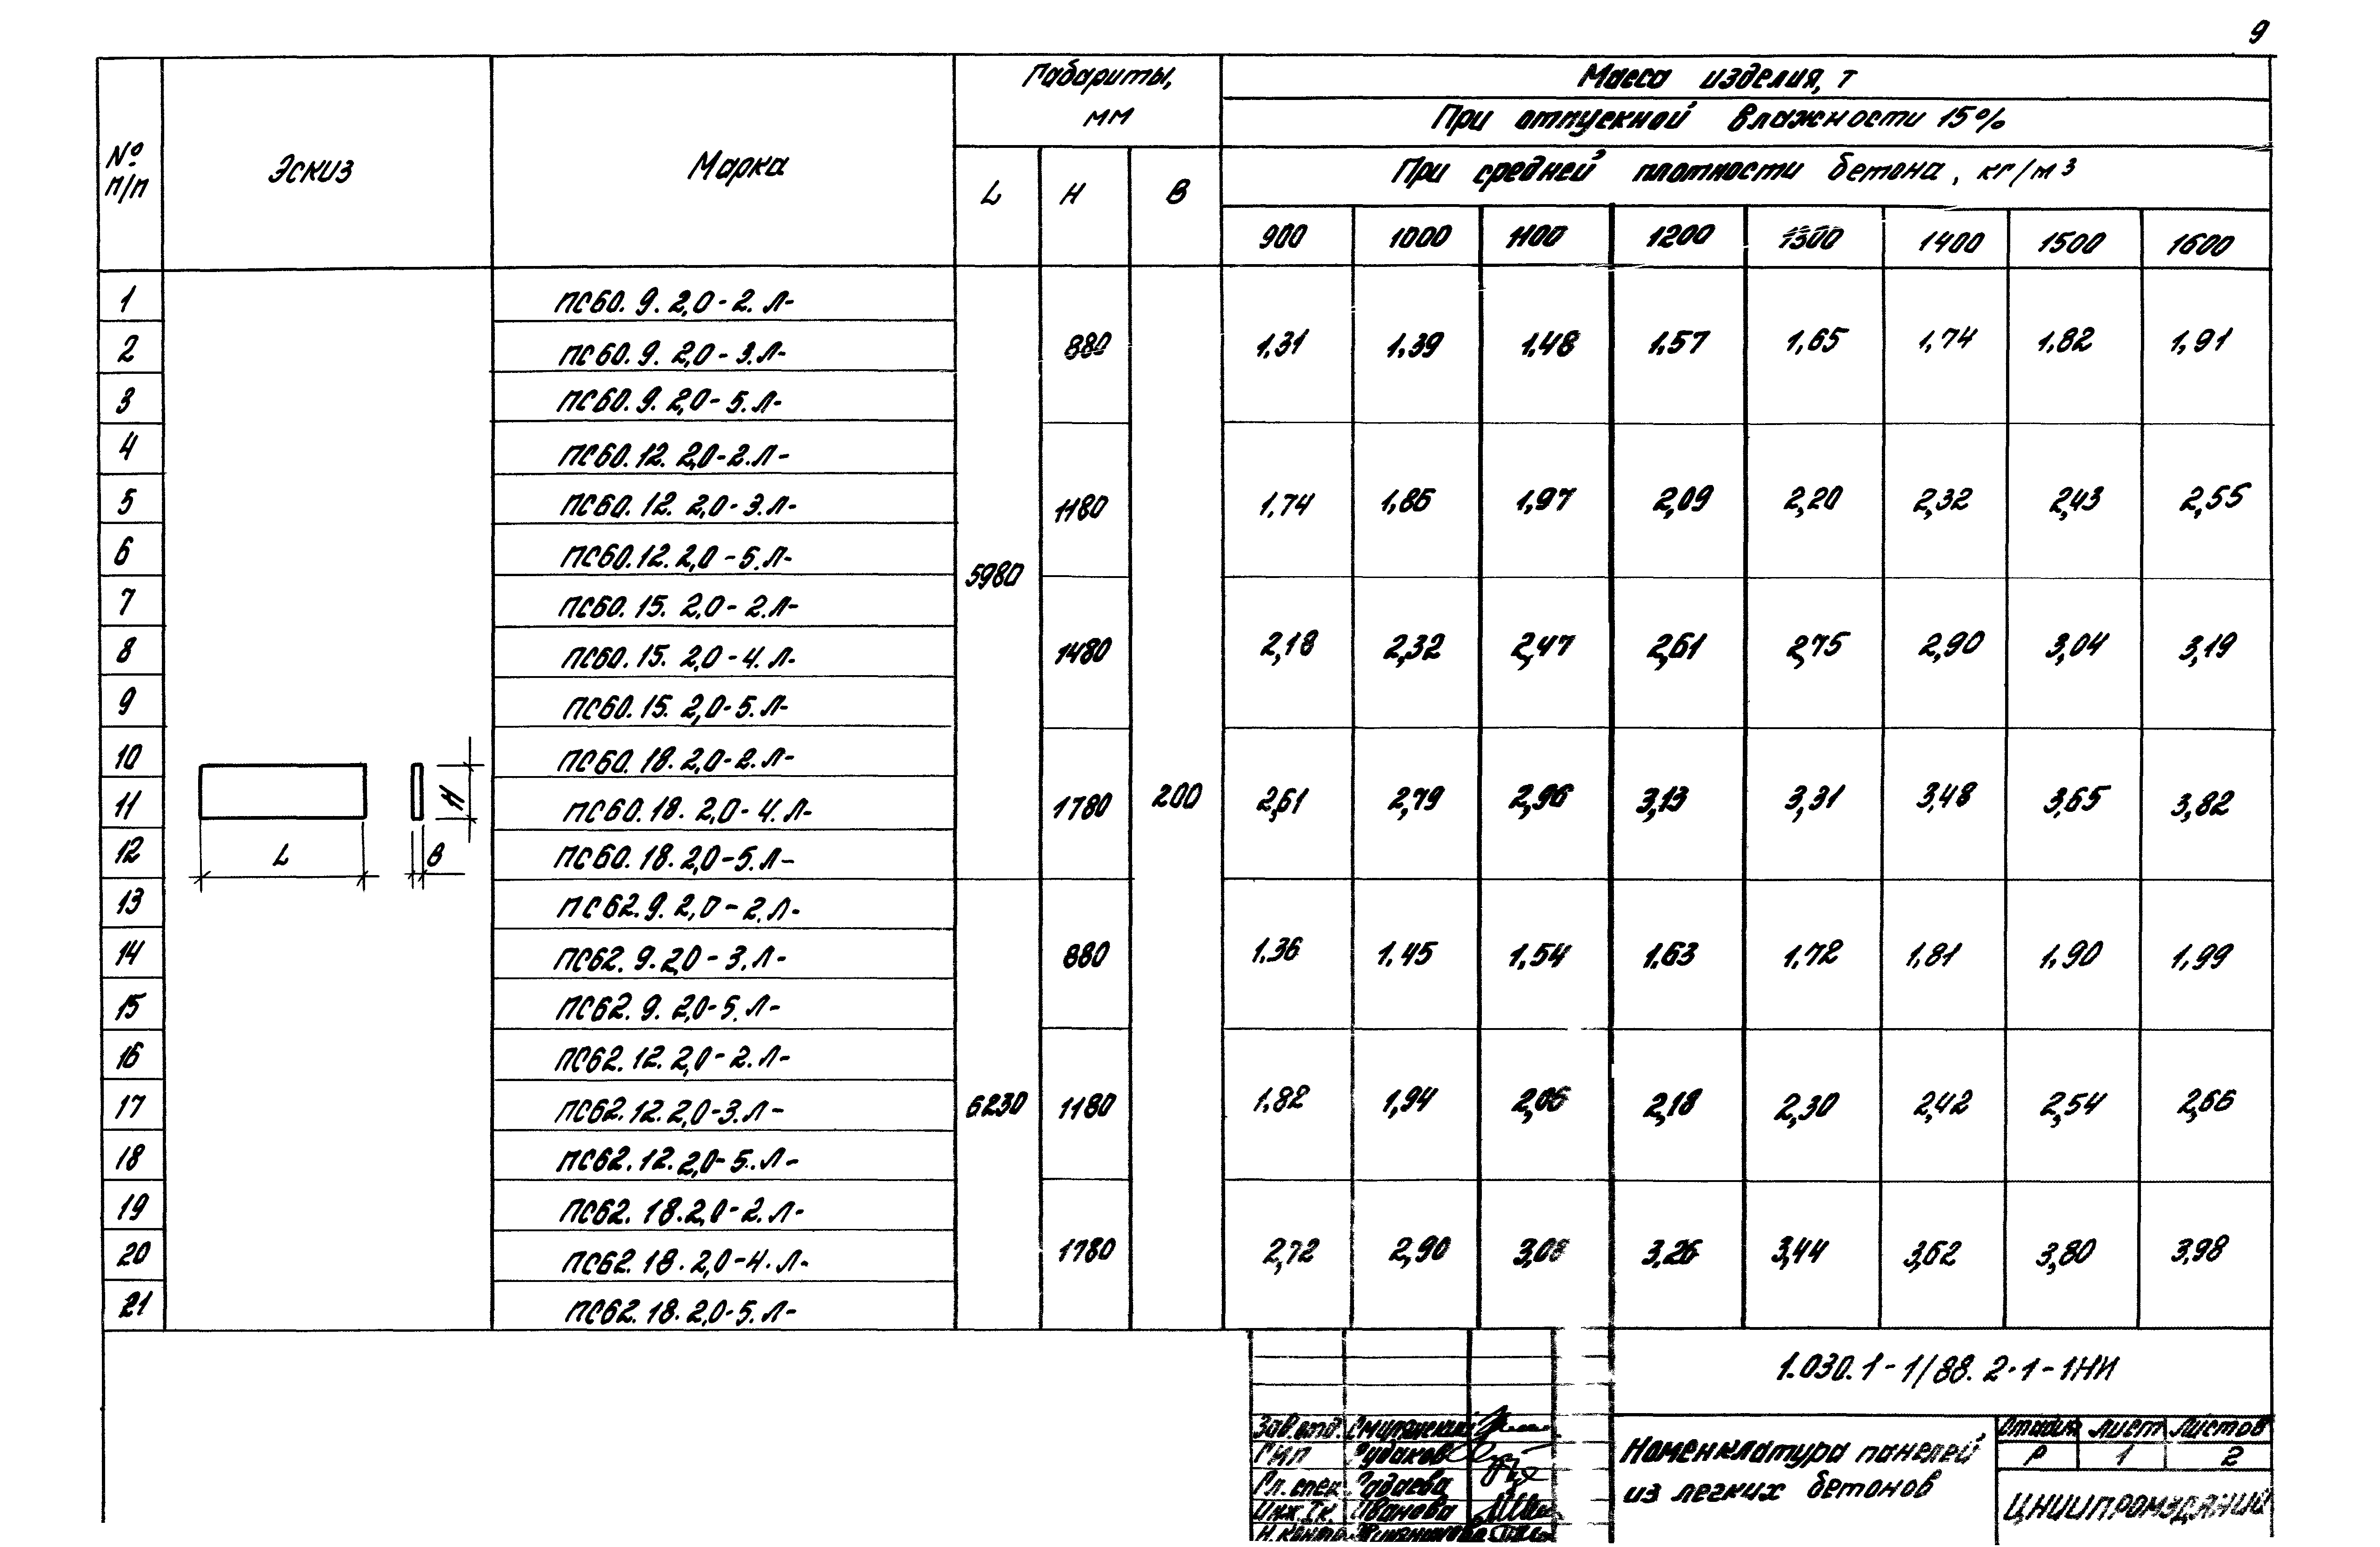 9
№ п/п Эскиз Марка Габариты, мм Масса изделия, т
При отпускной влажности 15%
При средней плотности бетона, кг/м3
L H B
900 1000 1100 1200 1300 1400 1500 1600
1 ПС60.9.2,0-2.Л-
2 ПС60.9.2,0-3.Л- 880 1,31 1,39 1,48 1,57 1,65 1,74 1,82 1,91
3 ПС60.9.2,0-5.Л-
4 ПС60.12.2,0-2.Л-
5 ПС60.12.2,0-3.Л- 1180 1,74 1,86 1,97 2,09 2,20 2,32 2,43 2,55
6 ПС60.12.2,0-5.Л-
5980
7 ПС60.15.2,0-2.Л-
8 ПС60.15.2,0-4.Л- 1480 2,18 2,32 2,47 2,61 2,75 2,90 3,04 3,19
9 ПС60.15.2,0-5.Л-
10 ПС60.18.2,0-2.Л-
11 H ПС60.18.2,0-4.Л- 1780 200 2,61 2,79 2,96 3,13 3,31 3,48 3,65 3,82
12 L B ПС60.18.2,0-5.Л-
13 ПС62.9.2,0-2.Л-
14 ПС62.9.2,0-3.Л- 880 1,36 1,45 1,54 1,63 1,72 1,81 1,90 1,99
15 ПС62.9.2,0-5.Л-
16 ПС62.12.2,0-2.Л-
17 ПС62.12.2,0-3.Л- 6230 1180 1,82 1,94 2,06 2,18 2,30 2,42 2,54 2,66
18 ПС62.12.2,0-5.Л-
19 ПС62.18.2,0-2.Л-
20 ПС62.18.2,0-4.Л- 1780 2,72 2,90 3,08 3,26 3,44 3,62 3,80 3,98
21 ПС62.18.2,0-5.Л-
1.030.1-1/88.2-1-1НИ
Зав.отд. Смилянский
ГИП Рудаков
Гл.спец. Радаева
Инж.Iк. Иванова
Н.контр.
Номенклатура панелей
из легких бетонов
Стадия Лист Листов
Р 1 2
ЦНИИПРОМЗДАНИЙ